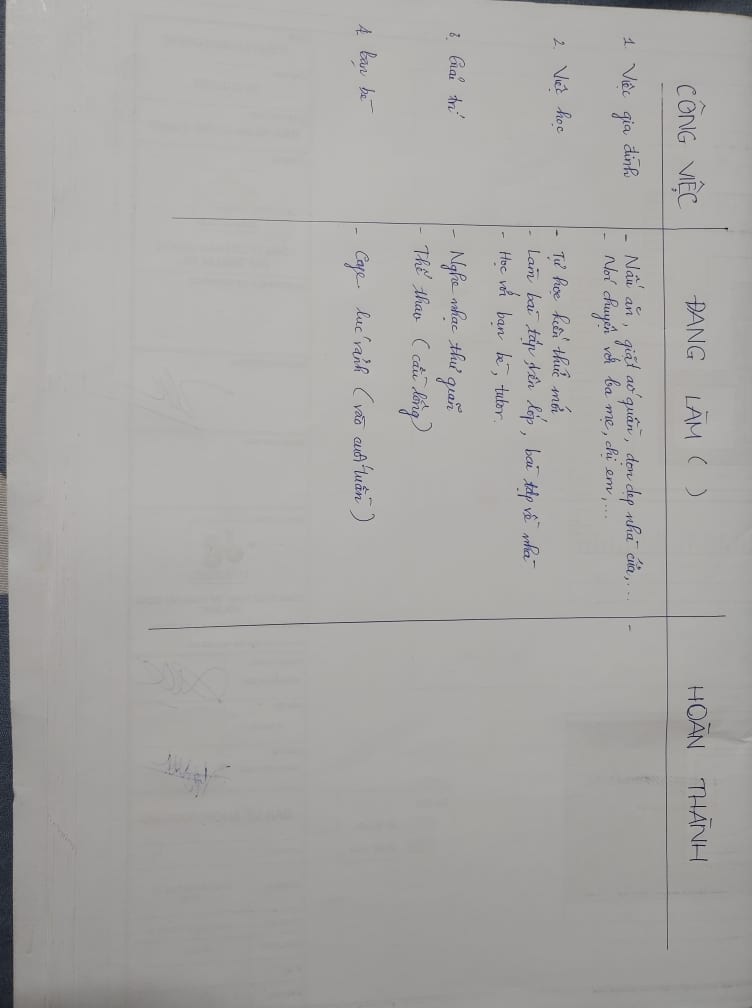 CÔNG VIỆC ĐANG LÀM ( ) HOÀN THÀNH
1. Việc gia đình - Nấu ăn, giặt áo quần, dọn dẹp nhà cửa,... -
- Nói chuyện với ba mẹ, chị em,...
2. Việc học - Tự học kiến thức mới
- Làm bài tập trên lớp, bài tập về nhà
- Học với bạn bè, tutor.
3. Giải trí - Nghe nhạc thư giãn
- Thể thao (cầu lông)
4. Bạn bè - Cafe lúc rảnh (vào cuối tuần)